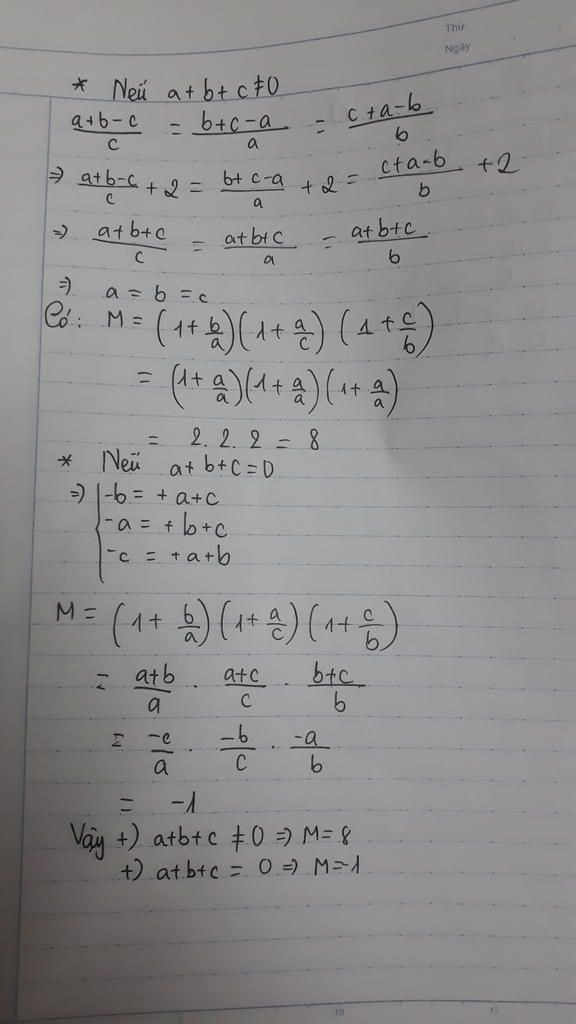 Thứ
Ngày
* Nếu a + b + c ≠ 0
(a+b-c)/c = (b+c-a)/a = (c+a-b)/b
=> (a+b-c)/c + 2 = (b+c-a)/a + 2 = (c+a-b)/b + 2
=> (a+b+c)/c = (a+b+c)/a = (a+b+c)/b
=> a = b = c
Có: M = (1 + b/a)(1 + a/c)(1 + c/b)
= (1 + a/a)(1 + a/a)(1 + a/a)
= 2. 2. 2 = 8
* Nếu a + b + c = 0
=> { -b = + a + c
-a = + b + c
-c = + a + b
M = (1 + b/a)(1 + a/c)(1 + c/b)
= (a+b)/a . (a+c)/c . (b+c)/b
= -c/a . -b/c . -a/b
= -1
Vậy +) a+b+c ≠ 0 => M = 8
+) a+b+c = 0 => M = -1
10 15